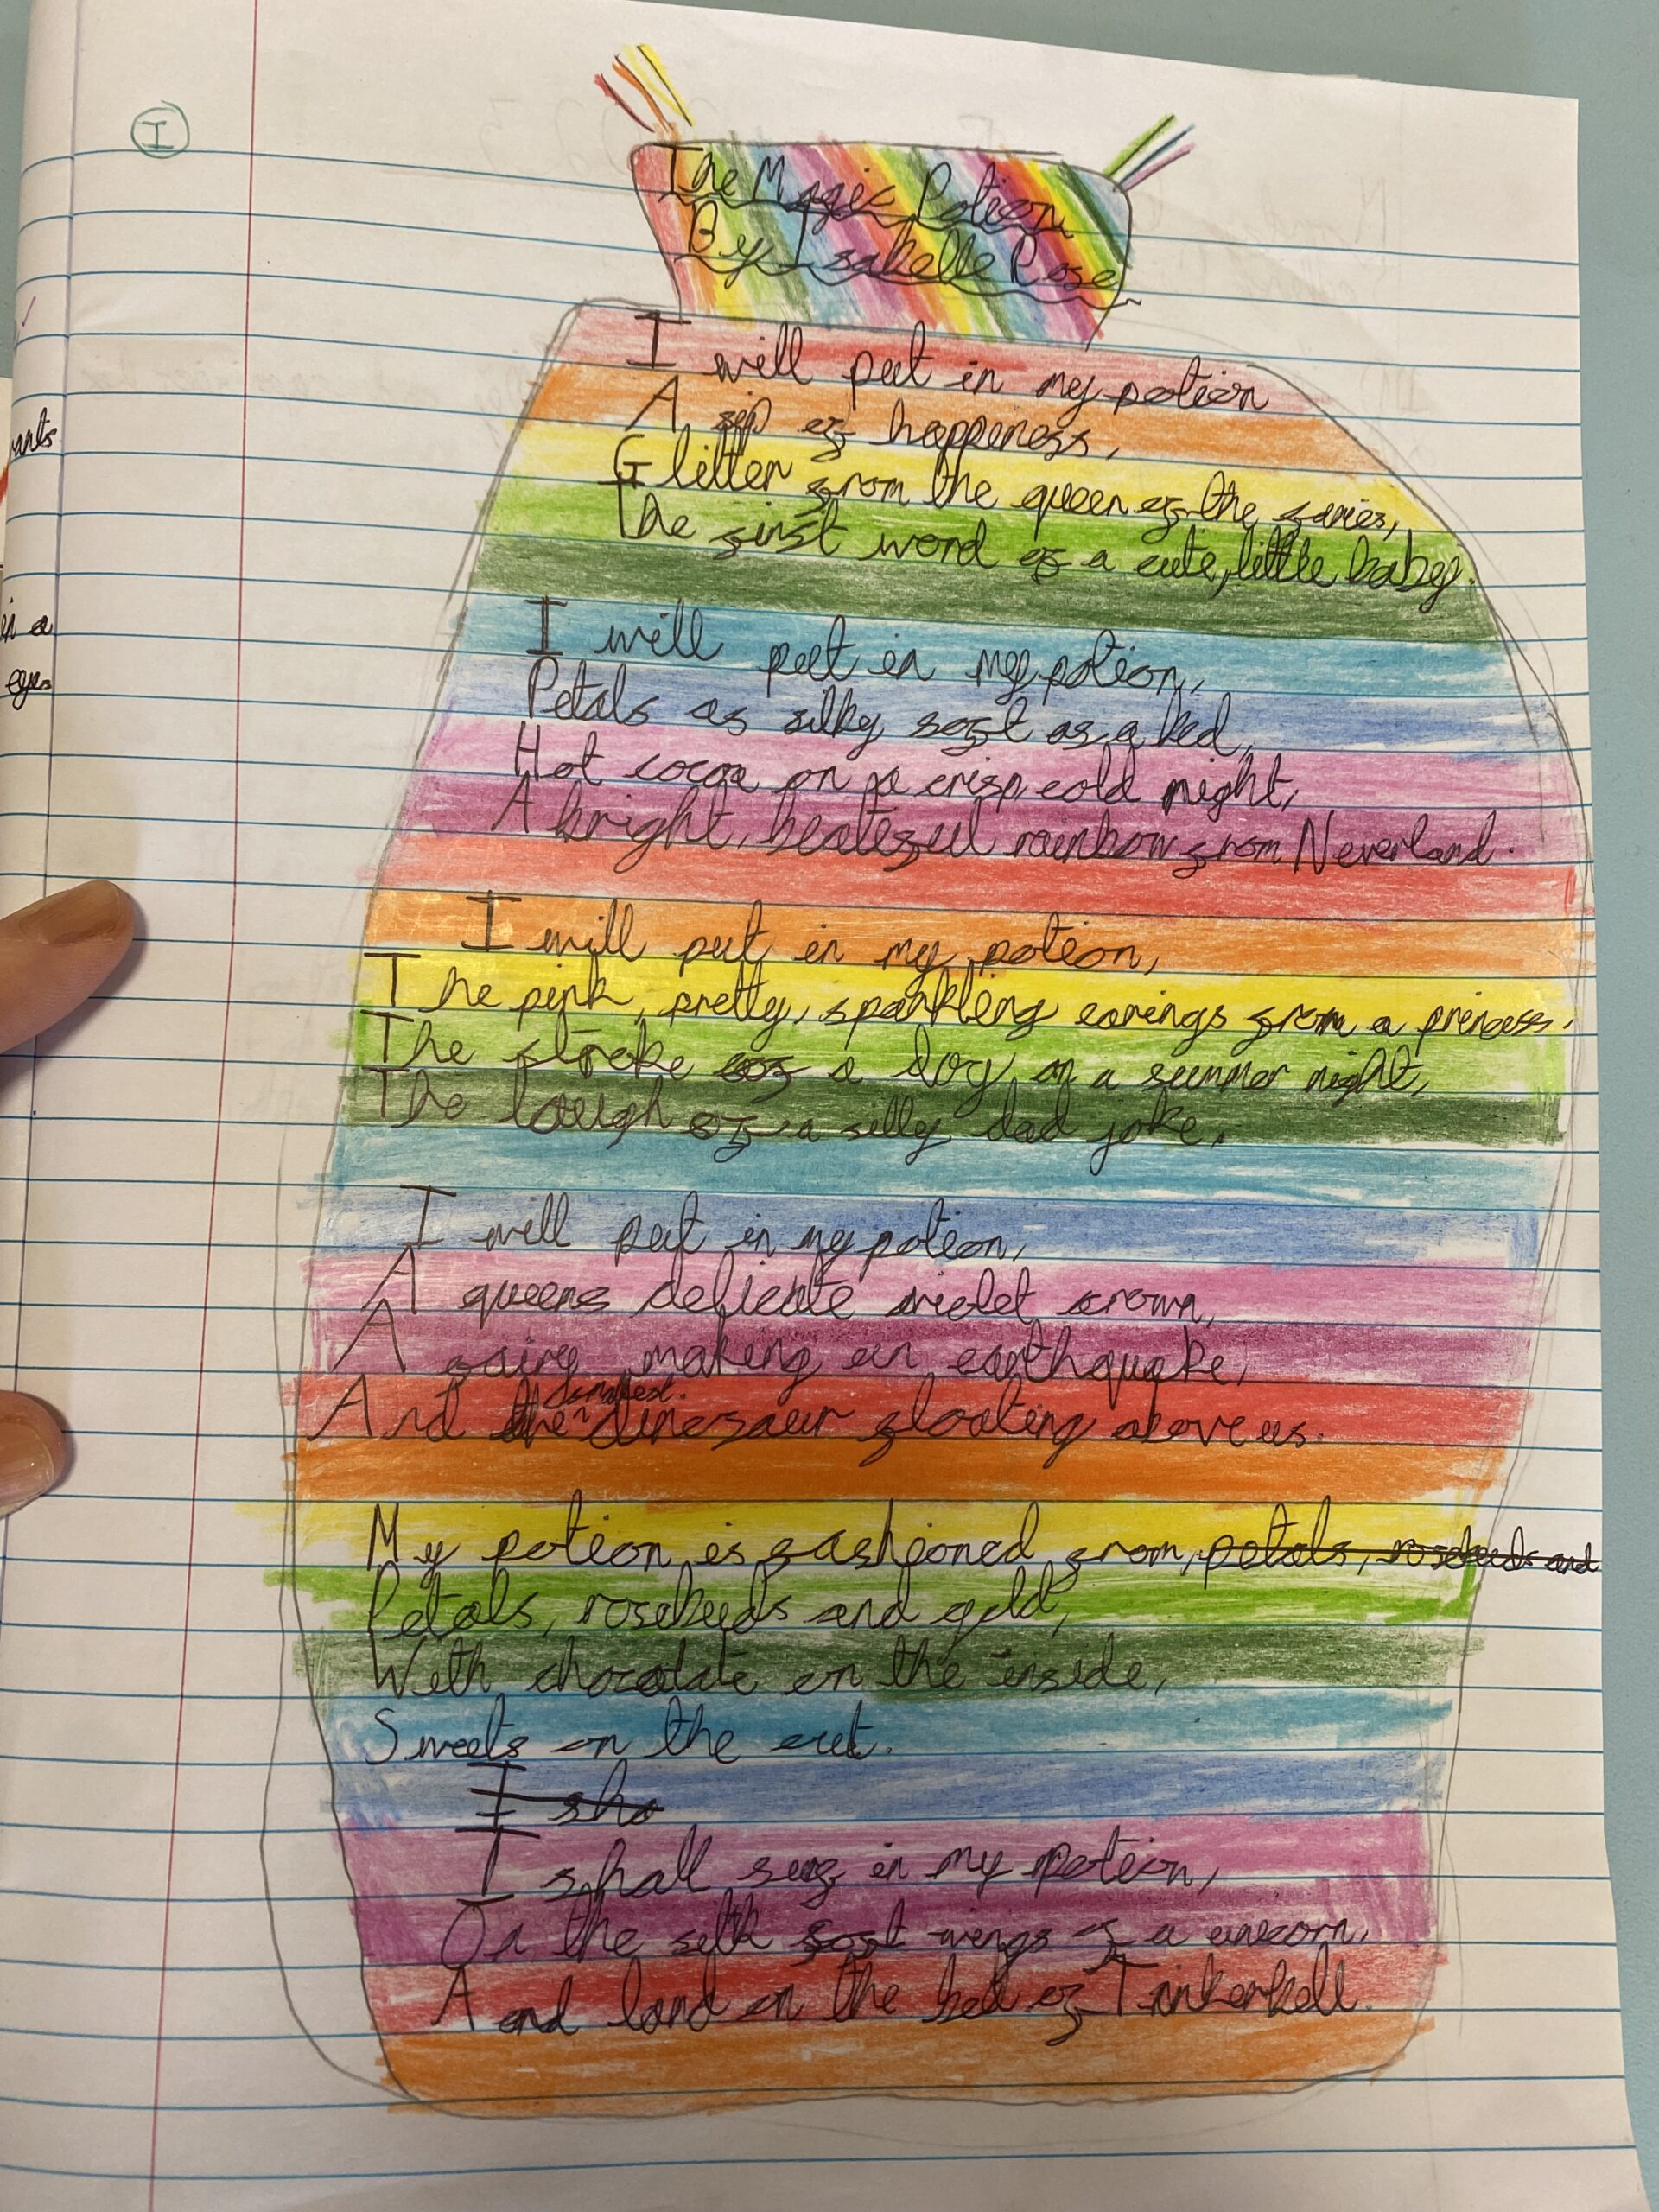 I
The Magic Potion
By Isabelle Rose
I will put in my potion
A sip of happeness,
Glitter from the queen of the faries,
The first word of a cute, little baby.
I will put in my potion,
Petals as silky soft as a bed,
Hot cocoa on a crisp, cold night,
A bright, beateful rainbow from Neverland.
I will put in my potion,
The pink, pretty, sparkling earings from a princess.
The stroke of a dog on a summer night,
The laugh of a silly dad joke,
I will put in my potion,
A queens delicate violet crown,
A fairy making an earthquake,
And the smallest dinosaur floating above us.
My potion is fashioned from, petals, rosebuds and
Petals, rosebuds and gold,
With chocolate on the inside,
Sweets on the out.
I sho
I shall surf in my potion,
On the silk soft wings of a unicorn,
And land on the bed of Tinkerbell.
ants
in a
eyes